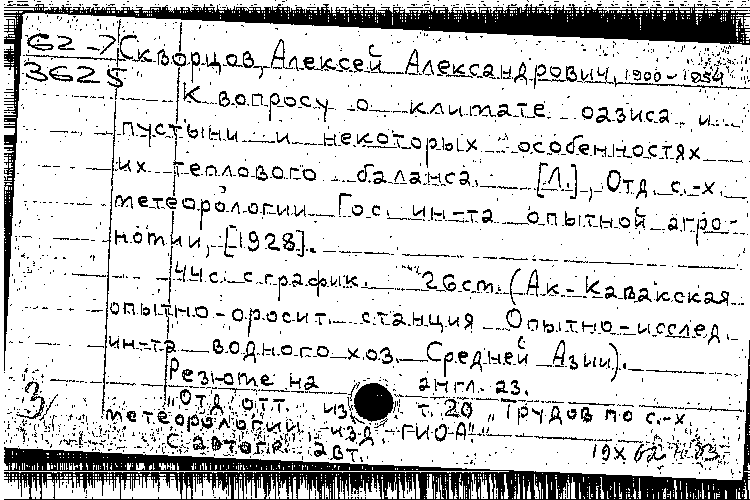 62-7 Скворцов, Алексей Александрович, 1900-1954
3625
К вопросу о климате оазиса и
пустыни и некоторых особенностях
их теплового баланса. [Л.], Отд. с.-х.
метеорологии Гос. ин-та опытной агро-
номии, [1928].
44с. с график. 26cm. (Ак-Кавакская
опытно-оросит. станция Опытно-исслед.
ин-та водного хоз. Средней Азии).
Резюме на англ. яз.
"Отд. отт. из т. 20 "Трудов по с.-х.
метеорологии", изд. ГИОА".
С автогр. авт. 19X
3/